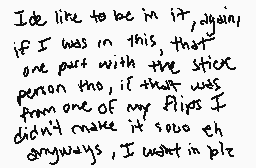 Ide like to be in it, again,
if I was in this, that
one part with the stick
person tho, if that was
from one of my flips I
didn't make it sooo eh
anyways, I want in plz